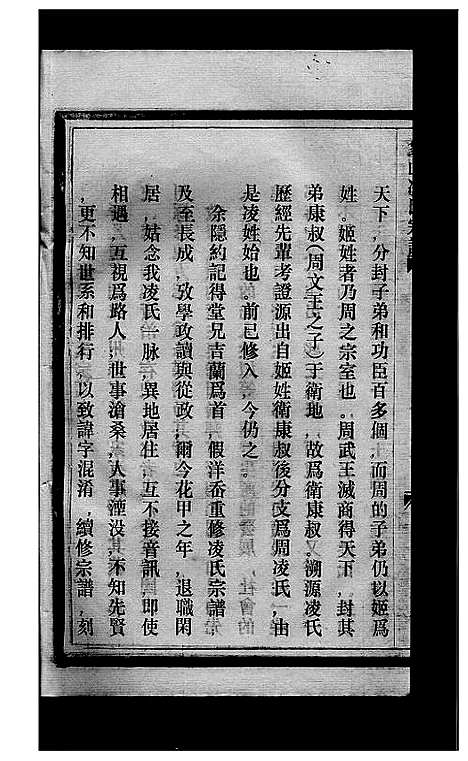 天下，分封子弟和功臣百多個，而周的子弟仍以姬爲
姓。姬姓者乃周之宗室也。周武王滅商得天下，封其
弟康叔（周文王之子）于衛地，故爲衛康叔。溯源凌氏
歷經先輩考證源出自姬姓衛康叔後分支爲周凌氏，由
是凌姓始也。前已修入，今仍之。
余隱約記得堂兄吉蘭爲首，假洋岙重修凌氏宗譜，
及至長成，攻學政讀與從政，爾今花甲之年，退職閑
居，姑念我凌氏一脉，異地居住，互不接音訊，即使
相遇，互視爲路人，世事滄桑，人事湮没，不知先賢
，更不知世系和排行，以致諱字混淆，續修宗譜，刻